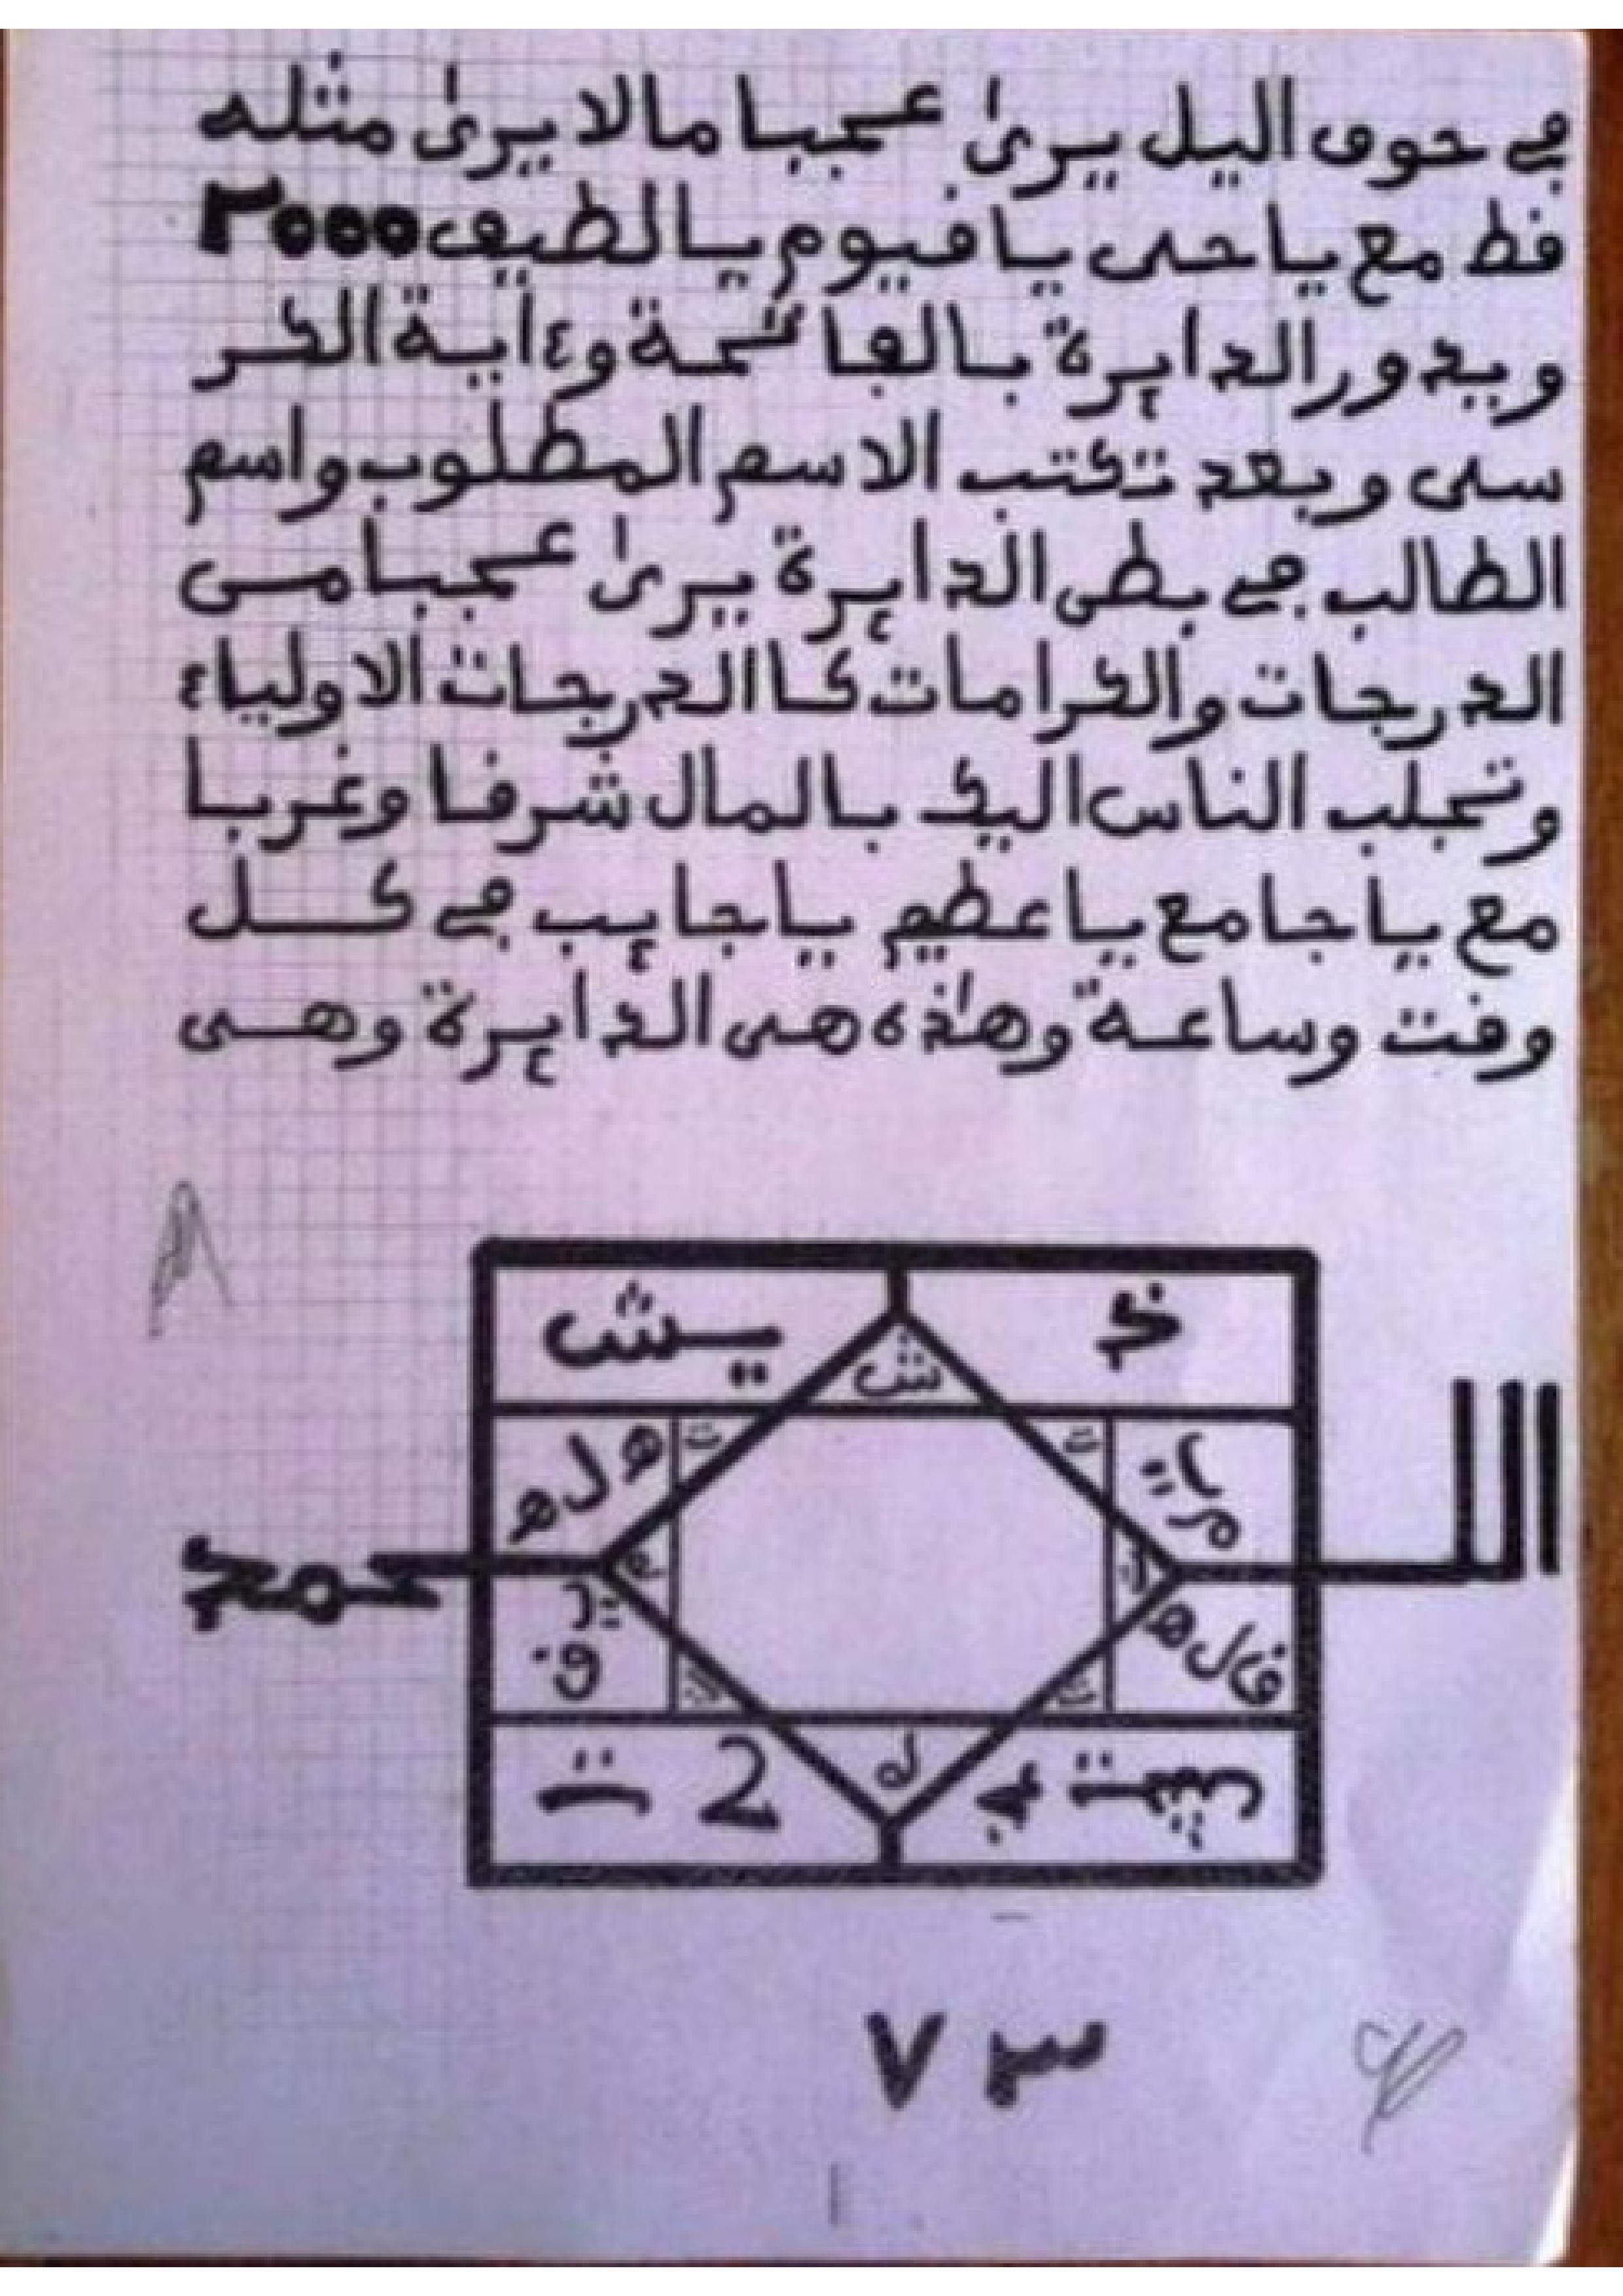 في جوف اليل يرىٰ عجبا مالا يرىٰ مثله
قط مع ياحى يا قيوم يا لطيف ٣٠٠٠
ويدور الدايرة بالفاتحة و٤ ءاية الكر
سى وبعد تكتب الاسم المطلوب واسم
الطالب في بطن الدايرة يرىٰ عجبا من
الدرجات والكرامات كاالدرجات الاولياء
وتجلب الناس اليك بالمال شرقا وغربا
مع ياجامع ياعظيم ياجايب في كـــل
وقت وساعة وهاذه هى الدايرة وهـى
يـش
ش
ت ت
هله
محمد
ال
ير
ق
قاله
ت 2
ك
٧٣